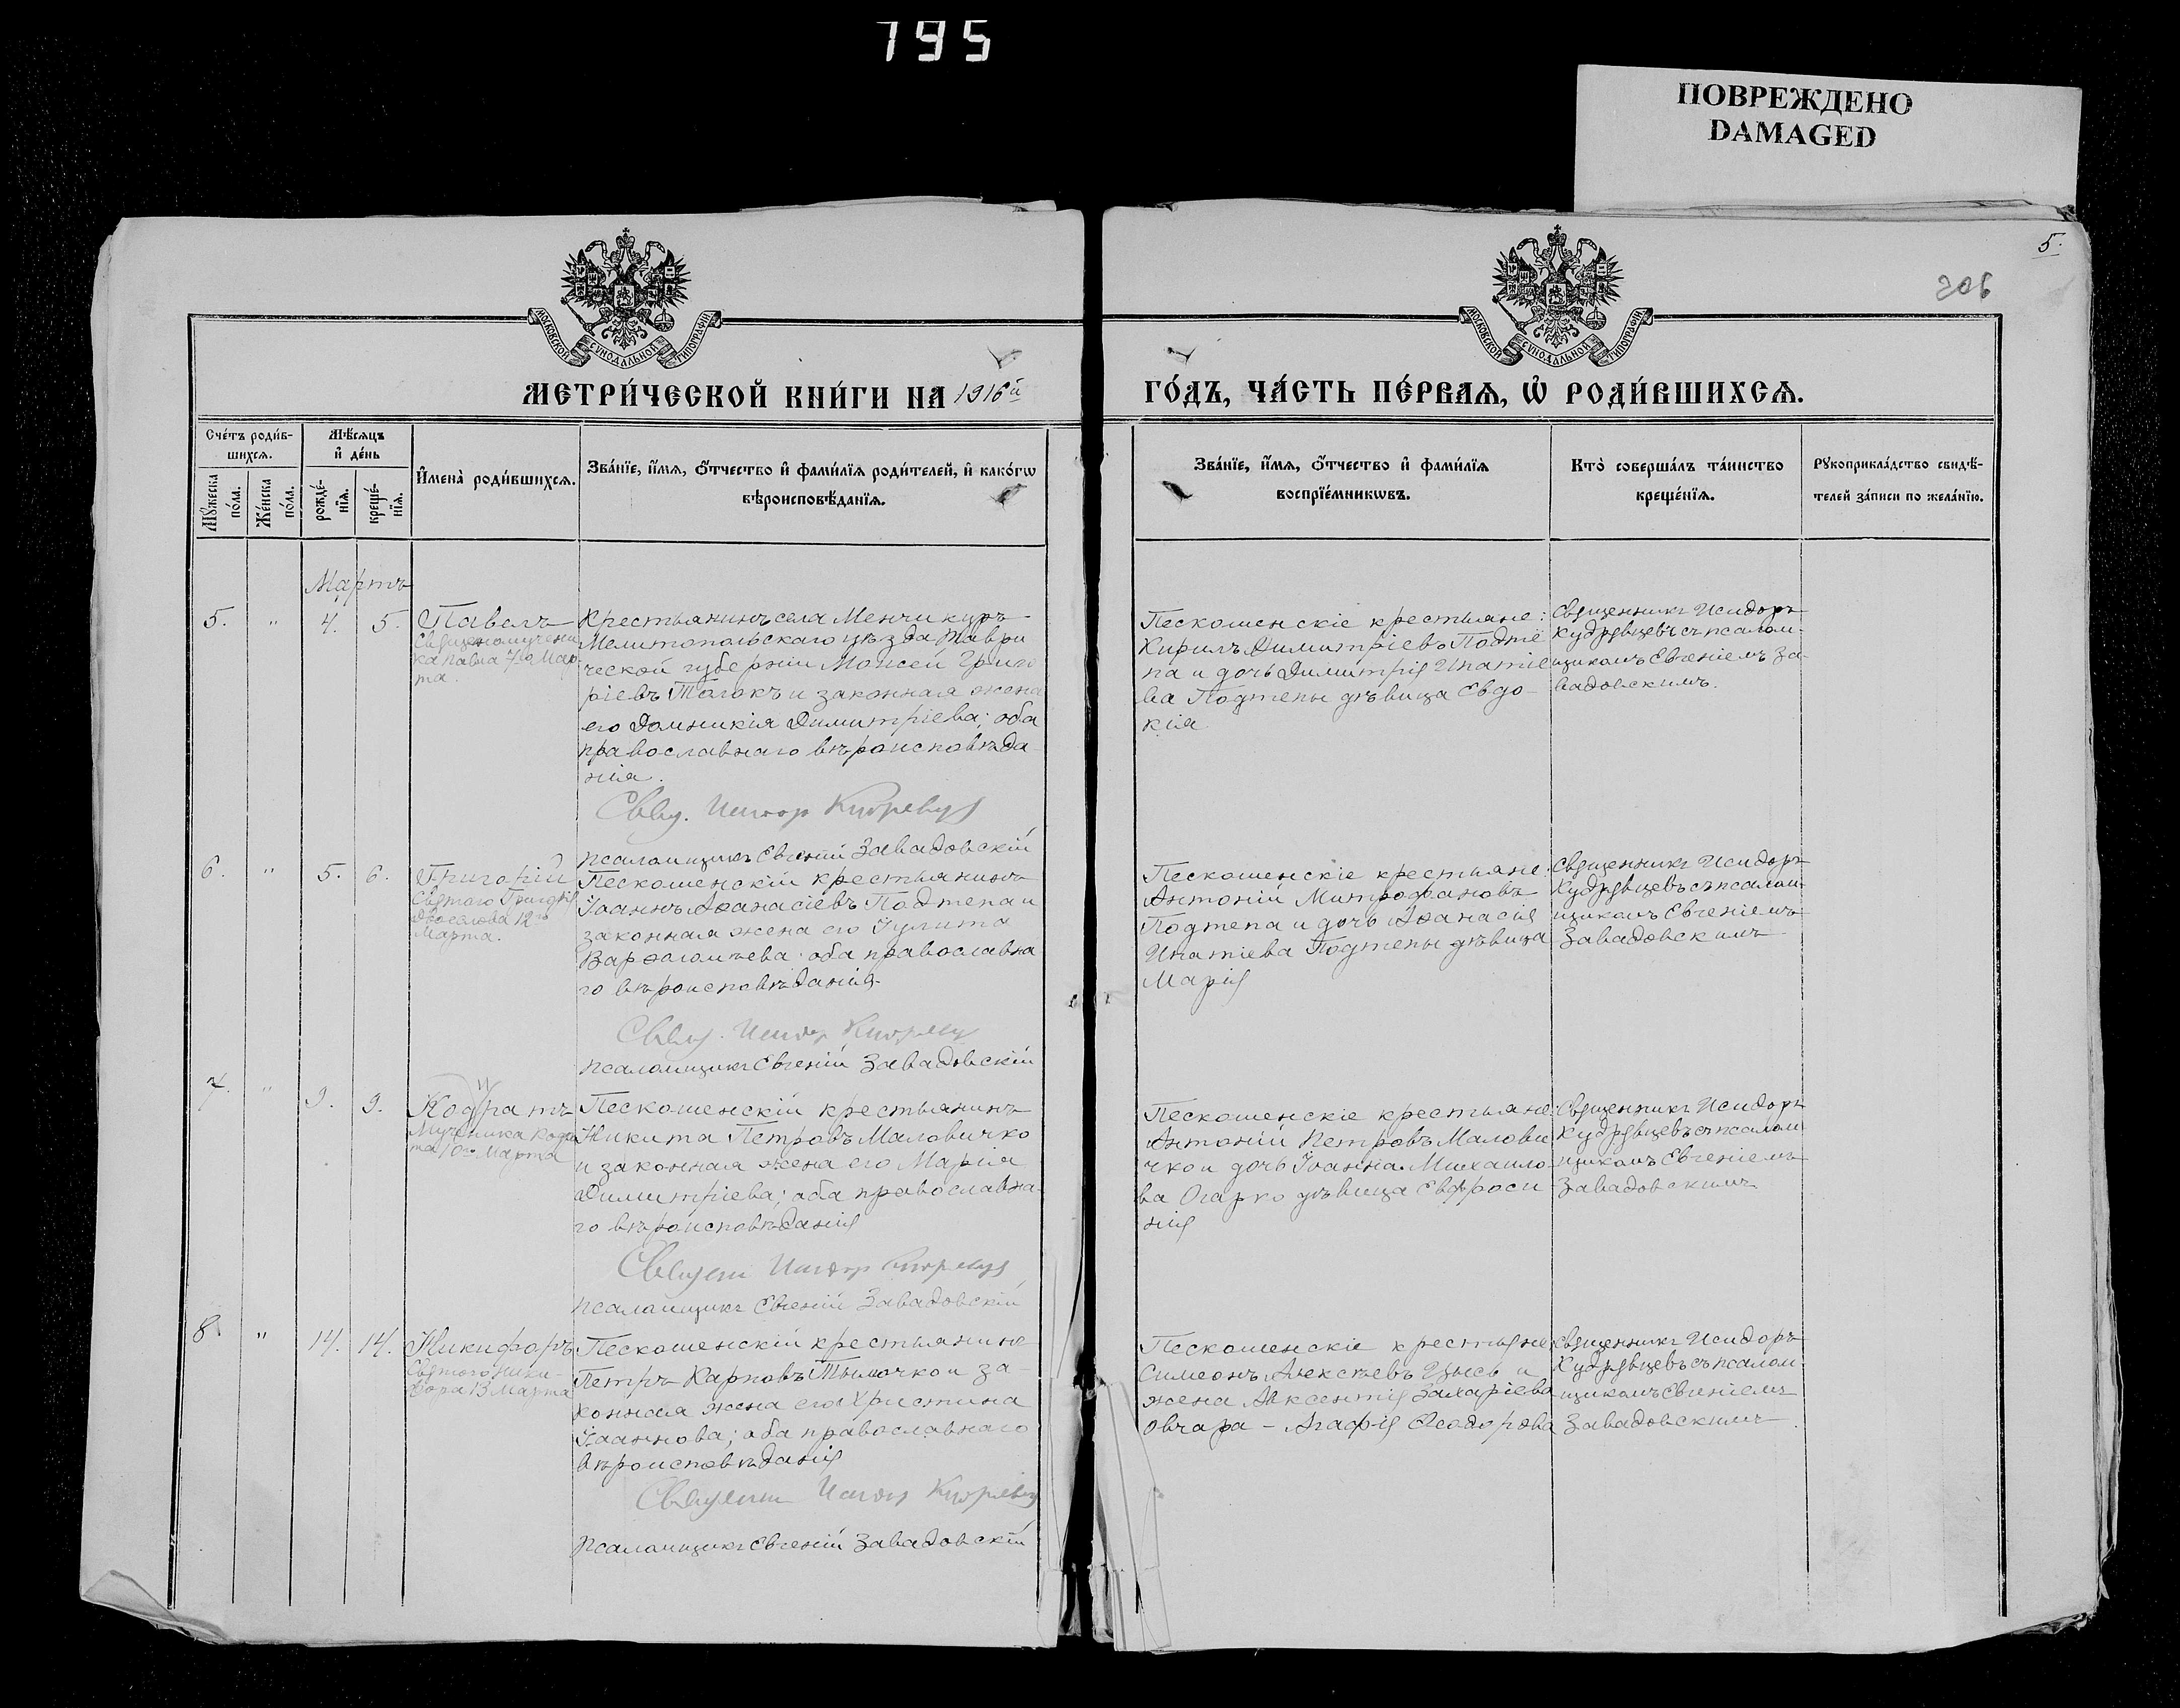 795
ПОВРЕЖДЕНО
DAMAGED
5.
206
МОСКОВСКОЙ СѴНОДАЛЬНОЙ ТИПОГРАФІИ
МОСКОВСКОЙ СѴНОДАЛЬНОЙ ТИПОГРАФІИ
МЕТРИ́ЧЕСКОЙ КНИ́ГИ НА 1916й
ГО́ДЪ, ЧА́СТЬ ПЕ́РВАѦ, Ѡ҆ РОДИ́ВШИХСѦ.
Сче́тъ роди́в-
шихсѧ.
Мꙋ́жеска
по́ла.
Же́нска
по́ла.
Мѣ́сѧцъ
и҆ де́нь
рожде́-
нїѧ.
креще́-
нїѧ.
И҆мена̀ роди́вшихсѧ.
Зва́нїе, и҆́мѧ, ѻ҆́тчество и҆ фами́лїѧ роди́телей, и҆ како́гѡ
вѣроисповѣ́данїѧ.
Зва́нїе, и҆́мѧ, ѻ҆́тчество и҆ фами́лїѧ
воспрїе́мникѡвъ.
Кто̀ соверша́лъ та́инство
креще́нїѧ.
Рꙋкоприкла́дство свидѣ́-
телей за́писи по жела́нїю.
Мартъ
5. " 4. 5.
Павелъ
Священомучени
ка Павла 7го Мар
та.
Крестьянинъ села Менчикуръ
Мелитопольскаго уѣзда Таври
ческой губерніи Моисей Григо
ріевъ Тагокъ и законная жена
его Домникія Димитріева; оба
православнаго вѣроисповѣда
нія.
Псаломщикъ Евгеній Завадовскій
Пескошенскіе крестьяне:
Кирилъ Димитріевъ Подтё
па и дочь Димитрія Ипатіе
ва Подтепы дѣвица Евдо-
кія
Священникъ Исидоръ
Кудрявцевъ съ псалом-
щикомъ Евгеніемъ За-
вадовскимъ.
6. " 5. 6.
Григорій
Святого Григорія
Двоеслова 12го
Марта.
Пескошенскій крестьянинъ
Іоаннъ Аѳанасіевъ Подтепа и
законная жена его Іулита
Варѳоломѣева; оба православна
го вѣроисповѣданія.
Псаломщикъ Евгеній Завадовскій
Пескошенскіе крестьяне:
Антоній Митрофановъ
Подтепа и дочь Аѳанасія
Ипатіева Подтепы дѣвица
Марія
Священникъ Исидоръ
Кудрявцевъ съ псалом-
щикомъ Евгеніемъ
Завадовскимъ
7. " 9. 9.
Кодратъ
Мученика Кодра
та 10го Марта
Пескошенскій крестьянинъ
Никита Петровъ Маловичко
и законная жена его Марія
Димитріева; оба православна-
го вѣроисповѣданія
Псаломщикъ Евгеній Завадовскій
Пескошенскіе крестьяне:
Антоній Петровъ Малови
чко и дочь Іоанна Михаило-
ва Огарко дѣвица Евфроси
нія
Священникъ Исидоръ
Кудрявцевъ съ псалом
щикомъ Евгеніемъ
Завадовскимъ
8. " 14. 14.
Никифоръ
Святого Ники-
фора 13 Марта
Пескошенскій крестьянинъ
Петръ Карповъ Тымочко и за-
конная жена его Христина
Іоаннова; оба православнаго
вѣроисповѣданія
Псаломщикъ Евгеній Завадовскій
Пескошенскіе крестьяне:
Симеонъ Алексѣевъ Цысь и
жена Авксентія Захаріева
Овчара - Агафія Ѳеодорова
Священникъ Исидоръ
Кудрявцевъ съ псалом
щикомъ Евгеніемъ
Завадовскимъ